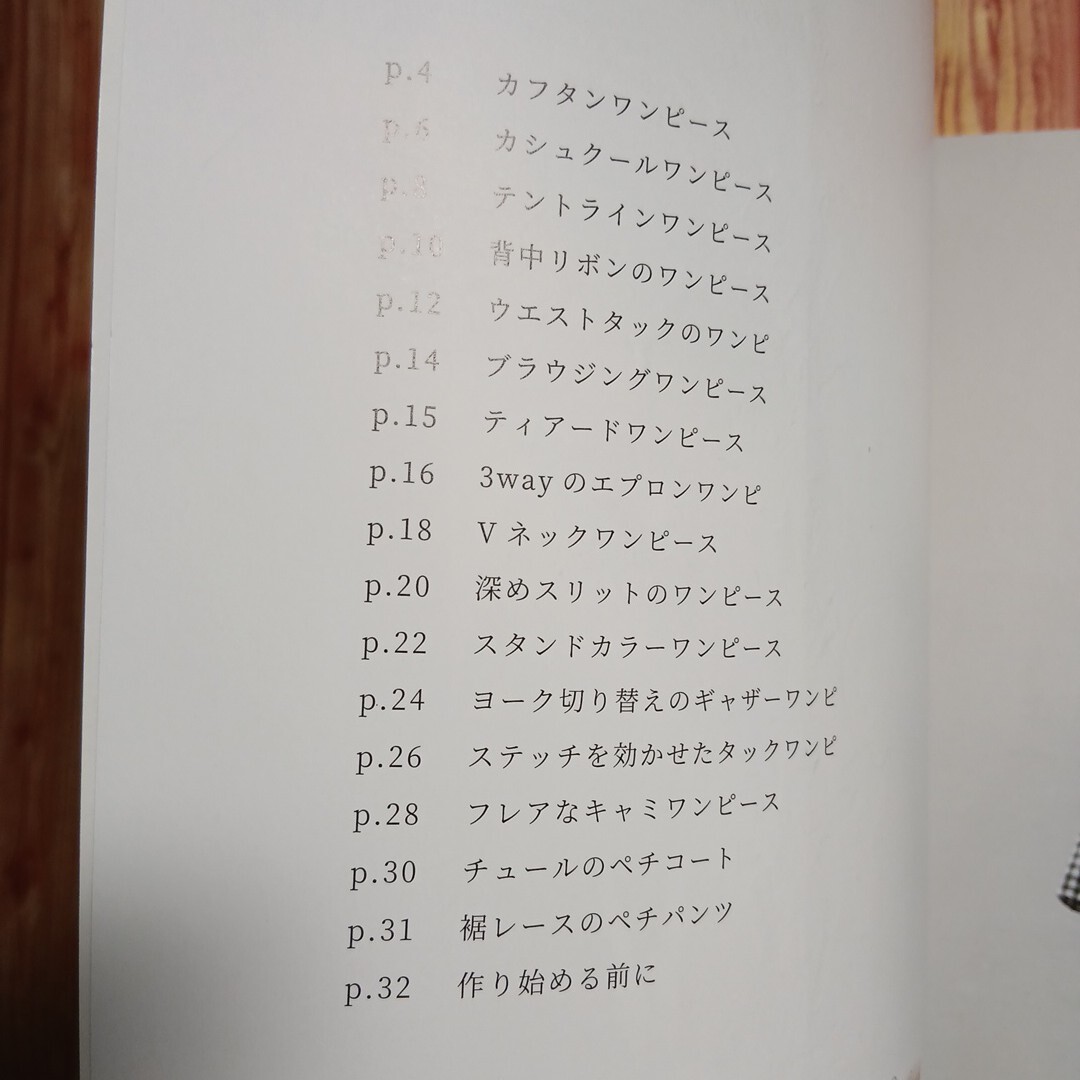 p.4 カフタンワンピース
p.6 カシュクールワンピース
p.8 テントラインワンピース
p.10 背中リボンのワンピース
p.12 ウエストタックのワンピ
p.14 ブラウジングワンピース
p.15 ティアードワンピース
p.16 3way のエプロンワンピ
p.18 V ネックワンピース
p.20 深めスリットのワンピース
p.22 スタンドカラーワンピース
p.24 ヨーク切り替えのギャザーワンピ
p.26 ステッチを効かせたタックワンピ
p.28 フレアなキャミワンピース
p.30 チュールのペチコート
p.31 裾レースのペチパンツ
p.32 作り始める前に